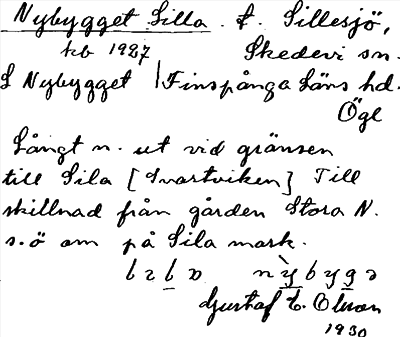 Nybygget Silla. t. Sillesjö,
kb 1927 Skedevi sn.
L Nybygget | Finspånga läns hd.
Ögl
Långt n. ut vid gränsen
till Sila [Svartviken] Till
skillnad från gården Stora N.
s.ö om på Sila mark.
nỳbygə
Gustaf E. Olsson
1930